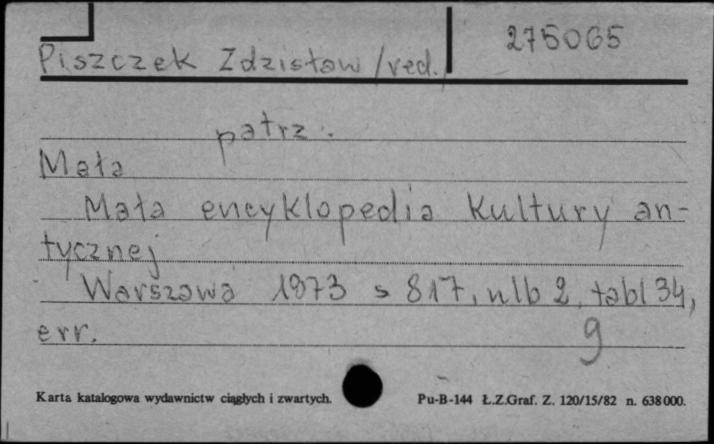 275065
Piszczek Zdzisław /red.
patrz:
Mała
Mała encyklopedia kultury an-
tycznej
Warszawa 1973 s 817, nlb 2, tabl 34,
err.
9
Karta katalogowa wydawnictw ciągłych i zwartych.
Pu-B-144 Ł.Z.Graf. Z. 120/15/82 n. 638000.